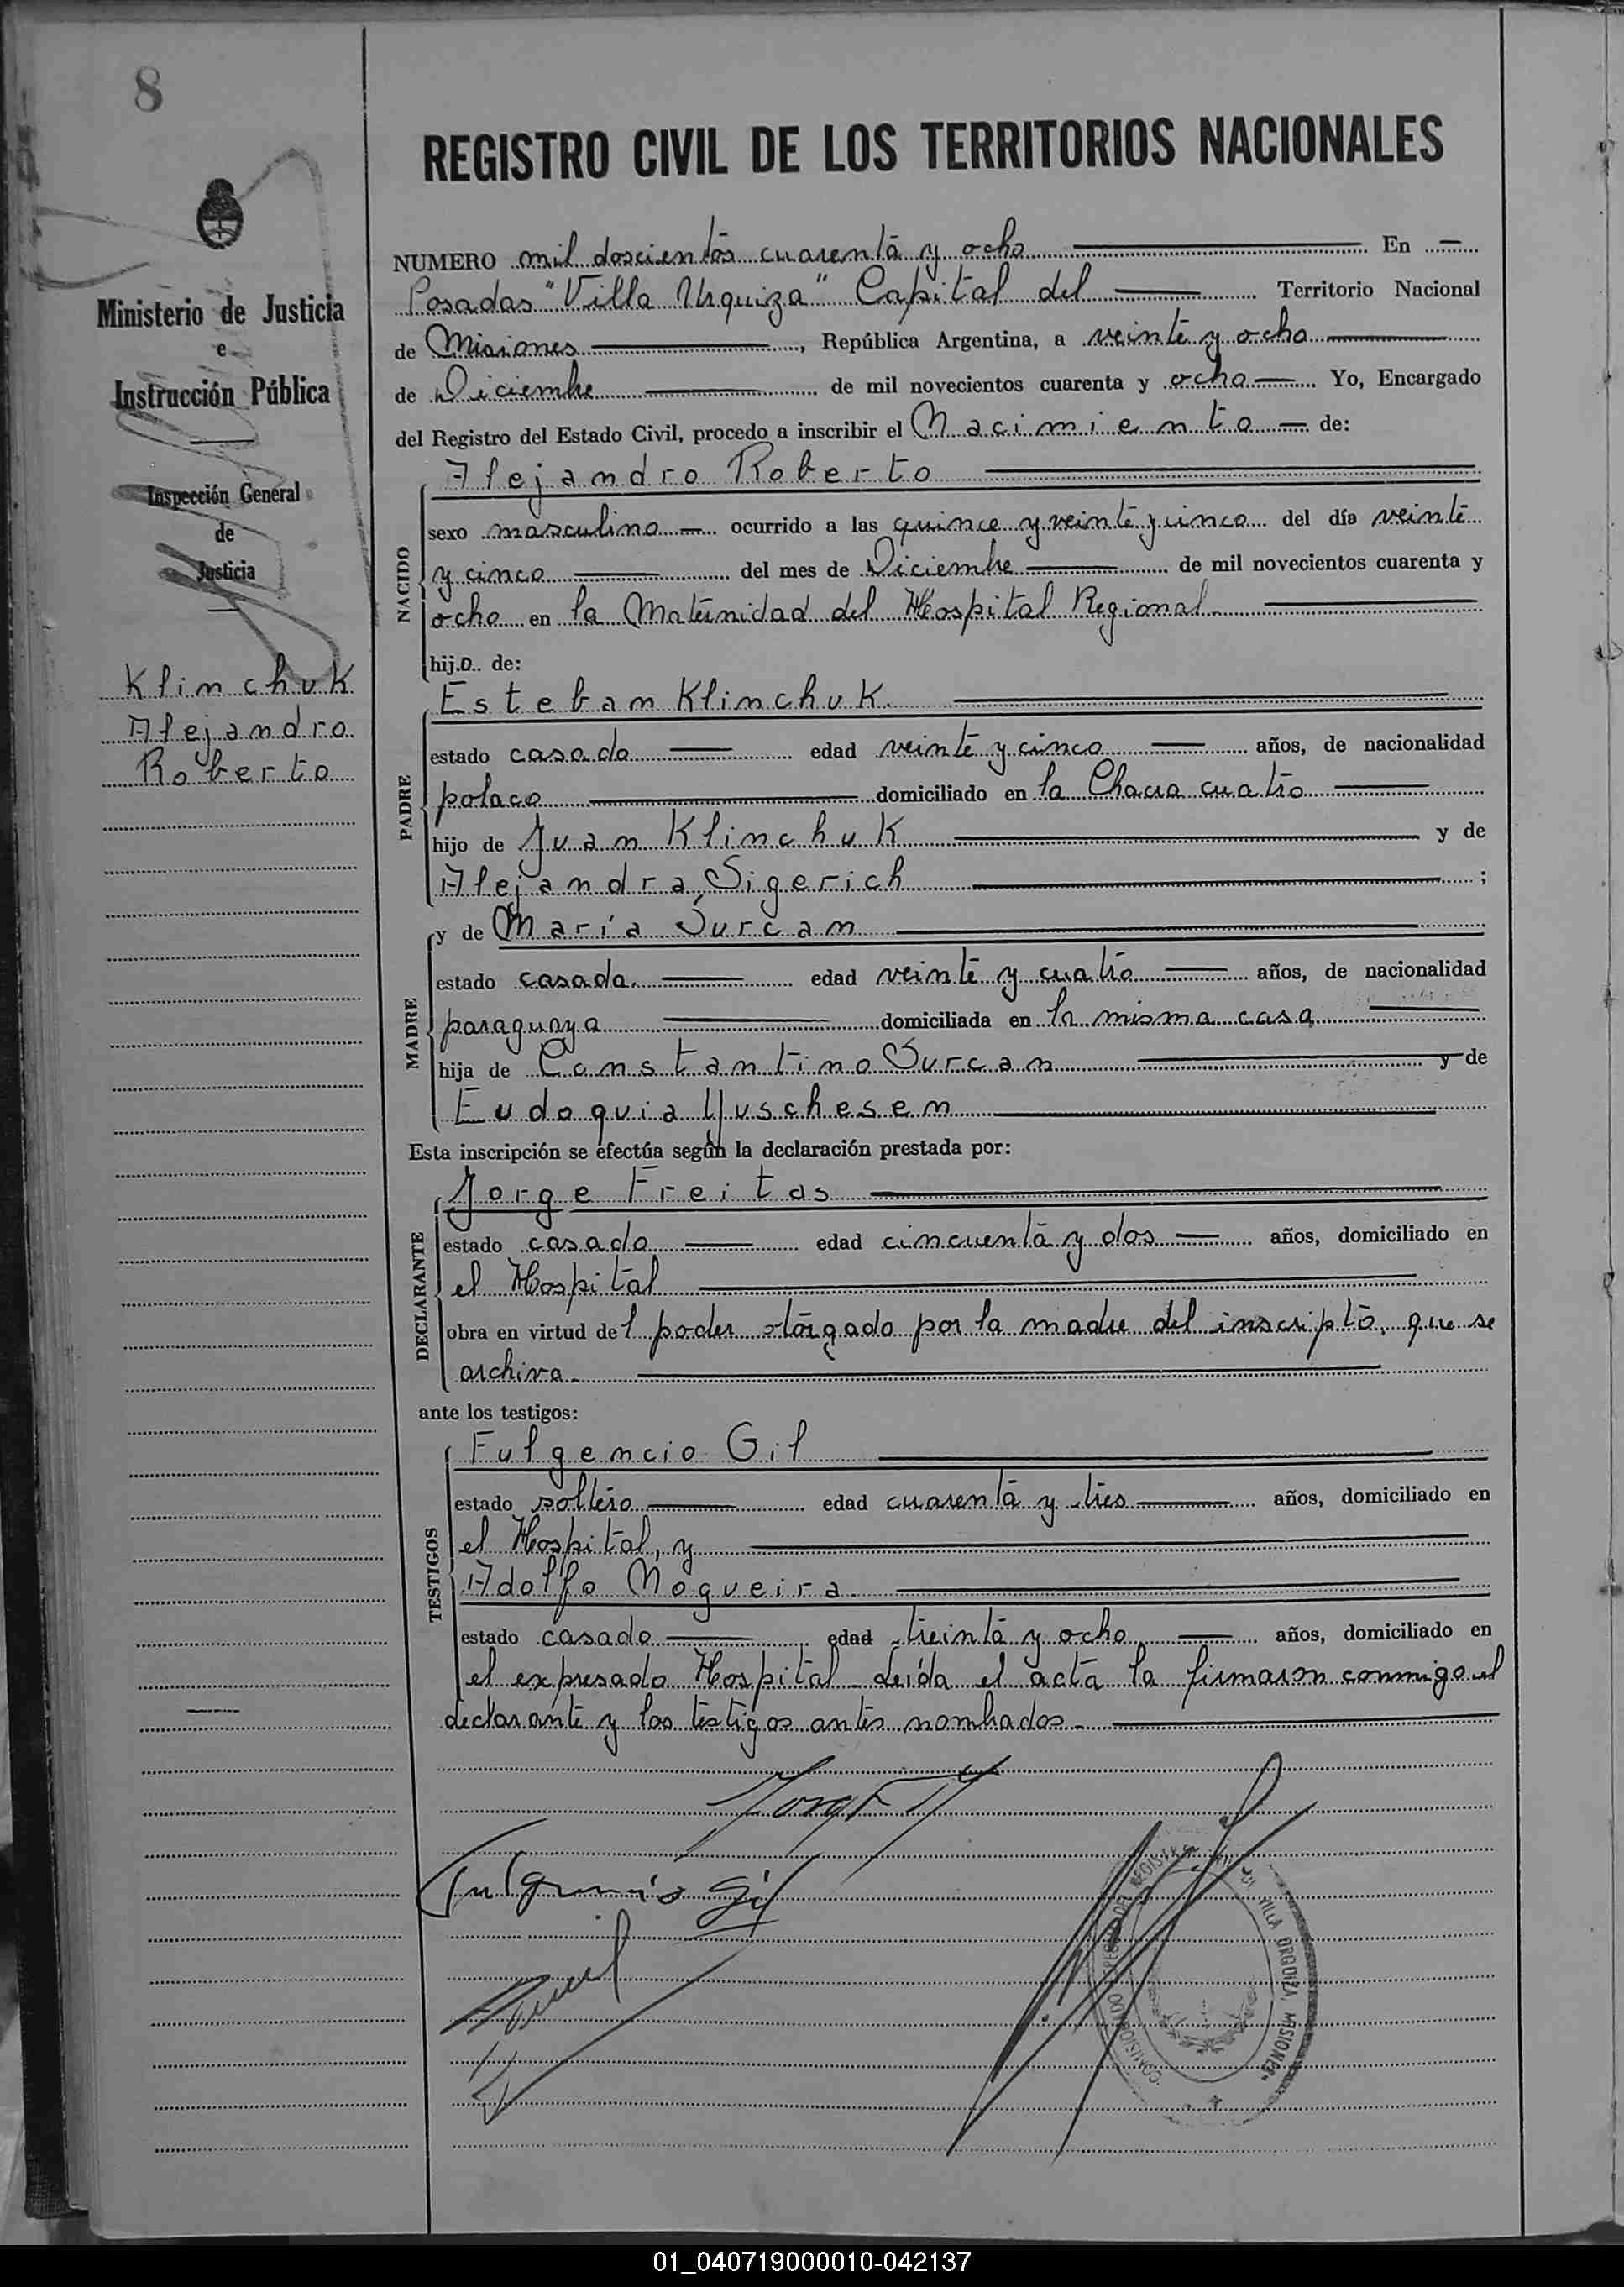 8
REGISTRO CIVIL DE LOS TERRITORIOS NACIONALES
Ministerio de Justicia
e
Instrucción Pública
Inspección General
de
Justicia
Klinchuk
Alejandro
Roberto
NUMERO mil doscientos cuarenta y ocho En
Posadas "Villa Urquiza" Capital del Territorio Nacional
de Misiones, República Argentina, a veinte y ocho
de Diciembre de mil novecientos cuarenta y ocho Yo, Encargado
del Registro del Estado Civil, procedo a inscribir el Nacimiento de:
NACIDO
Alejandro Roberto
sexo masculino ocurrido a las quince y veinte y cinco del día veinte
y cinco del mes de Diciembre de mil novecientos cuarenta y
ocho en la Maternidad del Hospital Regional
hijo de:
PADRE
Esteban Klinchuk.
estado casado edad veinte y cinco años, de nacionalidad
polaco domiciliado en la Chacra cuatro
hijo de Juan Klinchuk y de
Alejandra Sigerich ;
MADRE
y de María Surcan
estado casada. edad veinte y cuatro años, de nacionalidad
paraguaya domiciliada en la misma casa
hija de Constantino Surcan y de
Eudoquia Yuschesen
Esta inscripción se efectúa según la declaración prestada por:
DECLARANTE
Jorge Freitas
estado casado edad cincuenta y dos años, domiciliado en
el Hospital
obra en virtud del poder otorgado por la madre del inscripto, que se
archiva.
ante los testigos:
TESTIGOS
Fulgencio Gil
estado soltero edad cuarenta y tres años, domiciliado en
el Hospital, y
Adolfo Nogueira.
estado casado edad treinta y ocho años, domiciliado en
el expresado Hospital - Leída el acta la firmaron conmigo el
declarante y los testigos antes nombrados.
Fulgencio Gil
VILLA URQUIZA MISIONES
01_040719000010-042137